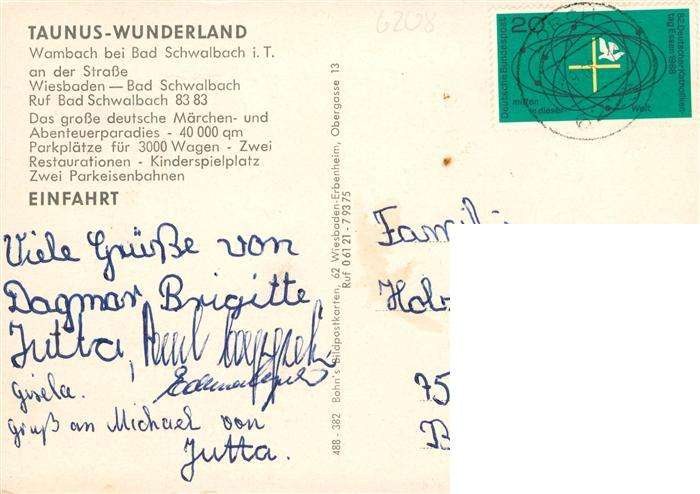 TAUNUS-WUNDERLAND
Wambach bei Bad Schwalbach i. T.
an der Straße
Wiesbaden — Bad Schwalbach
Ruf Bad Schwalbach 83 83
Das große deutsche Märchen- und
Abenteuerparadies - 40 000 qm
Parkplätze für 3000 Wagen - Zwei
Restaurationen - Kinderspielplatz
Zwei Parkeisenbahnen
EINFAHRT
Viele Grüße von
Dagmar Brigitte
Jutta,
Gisela.
Gruß an Michael von
Jutta.
488 - 382 Bohn's Bildpostkarten, 62 Wiesbaden-Erbenheim, Obergasse 13
Ruf 0 61 21 - 7 93 75
6208
20
Deutsche Bundespost
82. Deutscher Katholikentag Essen 1968
mitten in dieser Welt
Famili
Holz
75
B